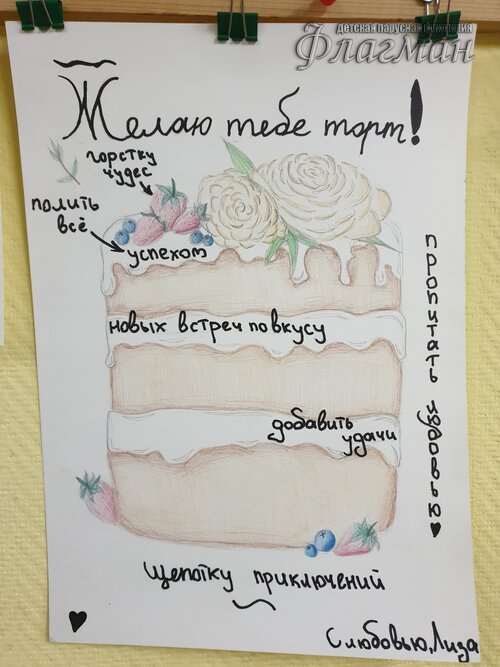 Детская парусная флотилия
Флагман
Желаю тебе торт!
горстку
чудес
полить
всё
успехом
новых встреч по вкусу
добавить
удачи
пропитать любовью
щепотку приключений
С любовью, Лиза